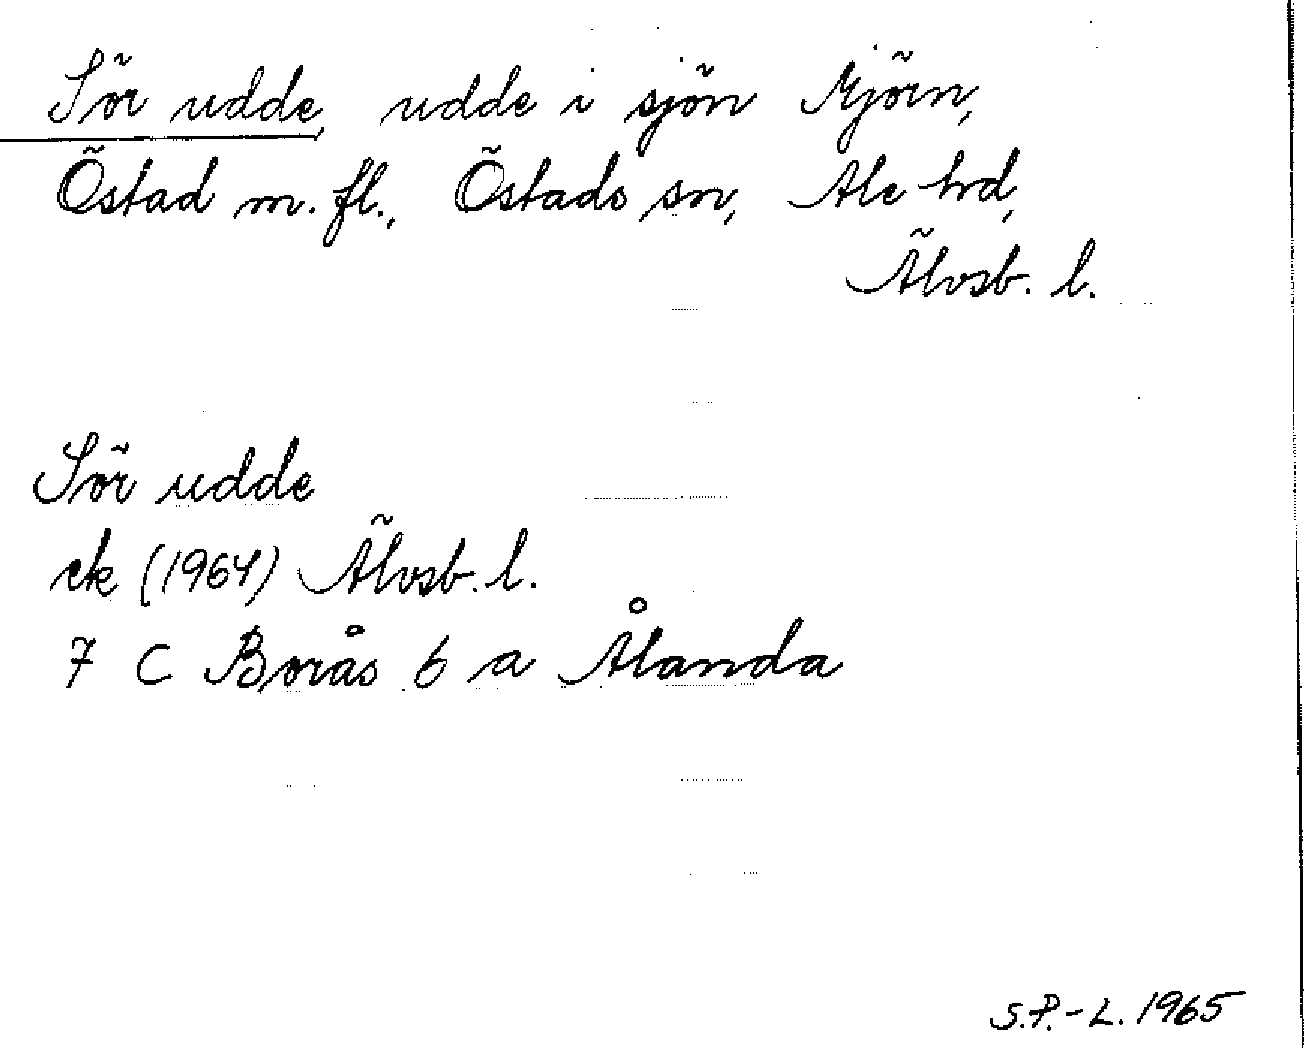 Sör udde, udde i sjön Mjörn,
Östad m. fl., Östads sn, Ale hrd,
Älvsb. l.
Sör udde
ek (1964) Älvsb. l.
7 C Borås 6 a Ålanda
S.P.-L. 1965